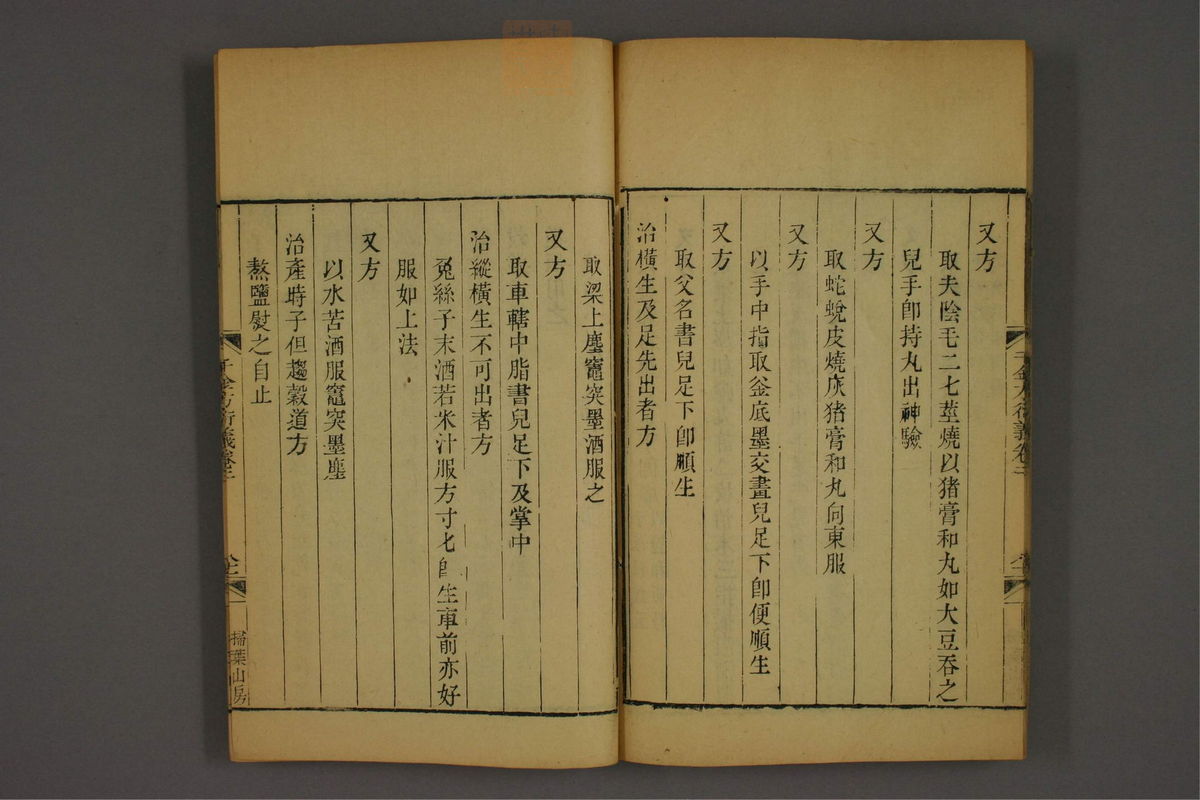 又方
取夫陰毛二七莖燒以猪膏和丸如大豆吞之
兒手卽持丸出神驗
又方
取蛇蛻皮燒灰猪膏和丸向東服
又方
以手中指取釜底墨交畫兒足下卽便順生
又方
取父名書兒足下卽順生
治橫生及足先出者方
取梁上塵竈突墨酒服之
又方
取車轄中脂書兒足下及掌中
治縱橫生不可出者方
菟絲子末酒若米汁服方寸匕卽生車前亦好
服如上法
又方
以水苦酒服竈突墨塵
治產時子但趨穀道方
熬鹽熨之自止
千金方衍義卷二
掃葉山房